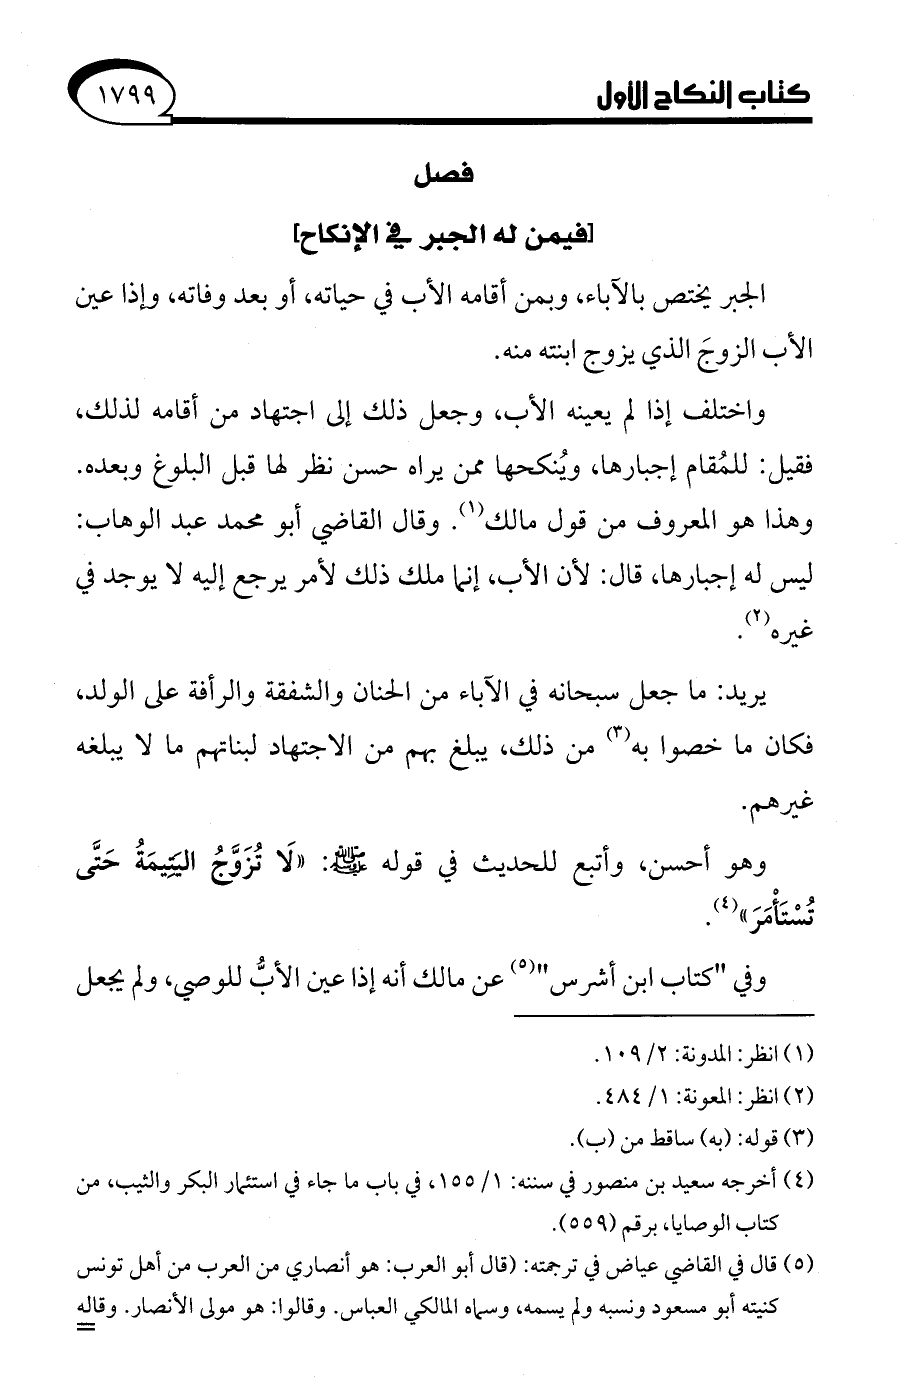 كتاب النكاح الأول
١٧٩٩
فصل
[فيمن له الجبر في الإنكاح]
الجبر يختص بالآباء، وبمن أقامه الأب في حياته، أو بعد وفاته، وإذا عين
الأب الزوجَ الذي يزوج ابنته منه.
واختلف إذا لم يعينه الأب، وجعل ذلك إلى اجتهاد من أقامه لذلك،
فقيل: للمُقام إجبارها، ويُنكحها ممن يراه حسن نظر لها قبل البلوغ وبعده.
وهذا هو المعروف من قول مالك(١). وقال القاضي أبو محمد عبد الوهاب:
ليس له إجبارها، قال: لأن الأب، إنما ملك ذلك لأمر يرجع إليه لا يوجد في
غيره(٢).
يريد: ما جعل سبحانه في الآباء من الحنان والشفقة والرأفة على الولد،
فكان ما خصوا به(٣) من ذلك، يبلغ بهم من الاجتهاد لبناتهم ما لا يبلغه
غيرهم.
وهو أحسن، وأتبع للحديث في قوله ﷺ: «لَا تُزَوَّجُ اليَتِيمَةُ حَتَّى
تُسْتَأْمَرَ»(٤).
وفي "كتاب ابن أشرس"(٥) عن مالك أنه إذا عين الأبُّ للوصي، ولم يجعل
(١) انظر: المدونة: ٢/ ١٠٩.
(٢) انظر: المعونة: ١/ ٤٨٤.
(٣) قوله: (به) ساقط من (ب).
(٤) أخرجه سعيد بن منصور في سننه: ١/ ١٥٥، في باب ما جاء في استئمار البكر والثيب، من
كتاب الوصايا، برقم (٥٥٩).
(٥) قال في القاضي عياض في ترجمته: (قال أبو العرب: هو أنصاري من العرب من أهل تونس
كنيته أبو مسعود ونسبه ولم يسمه، وسماه المالكي العباس. وقالوا: هو مولى الأنصار. وقاله
=